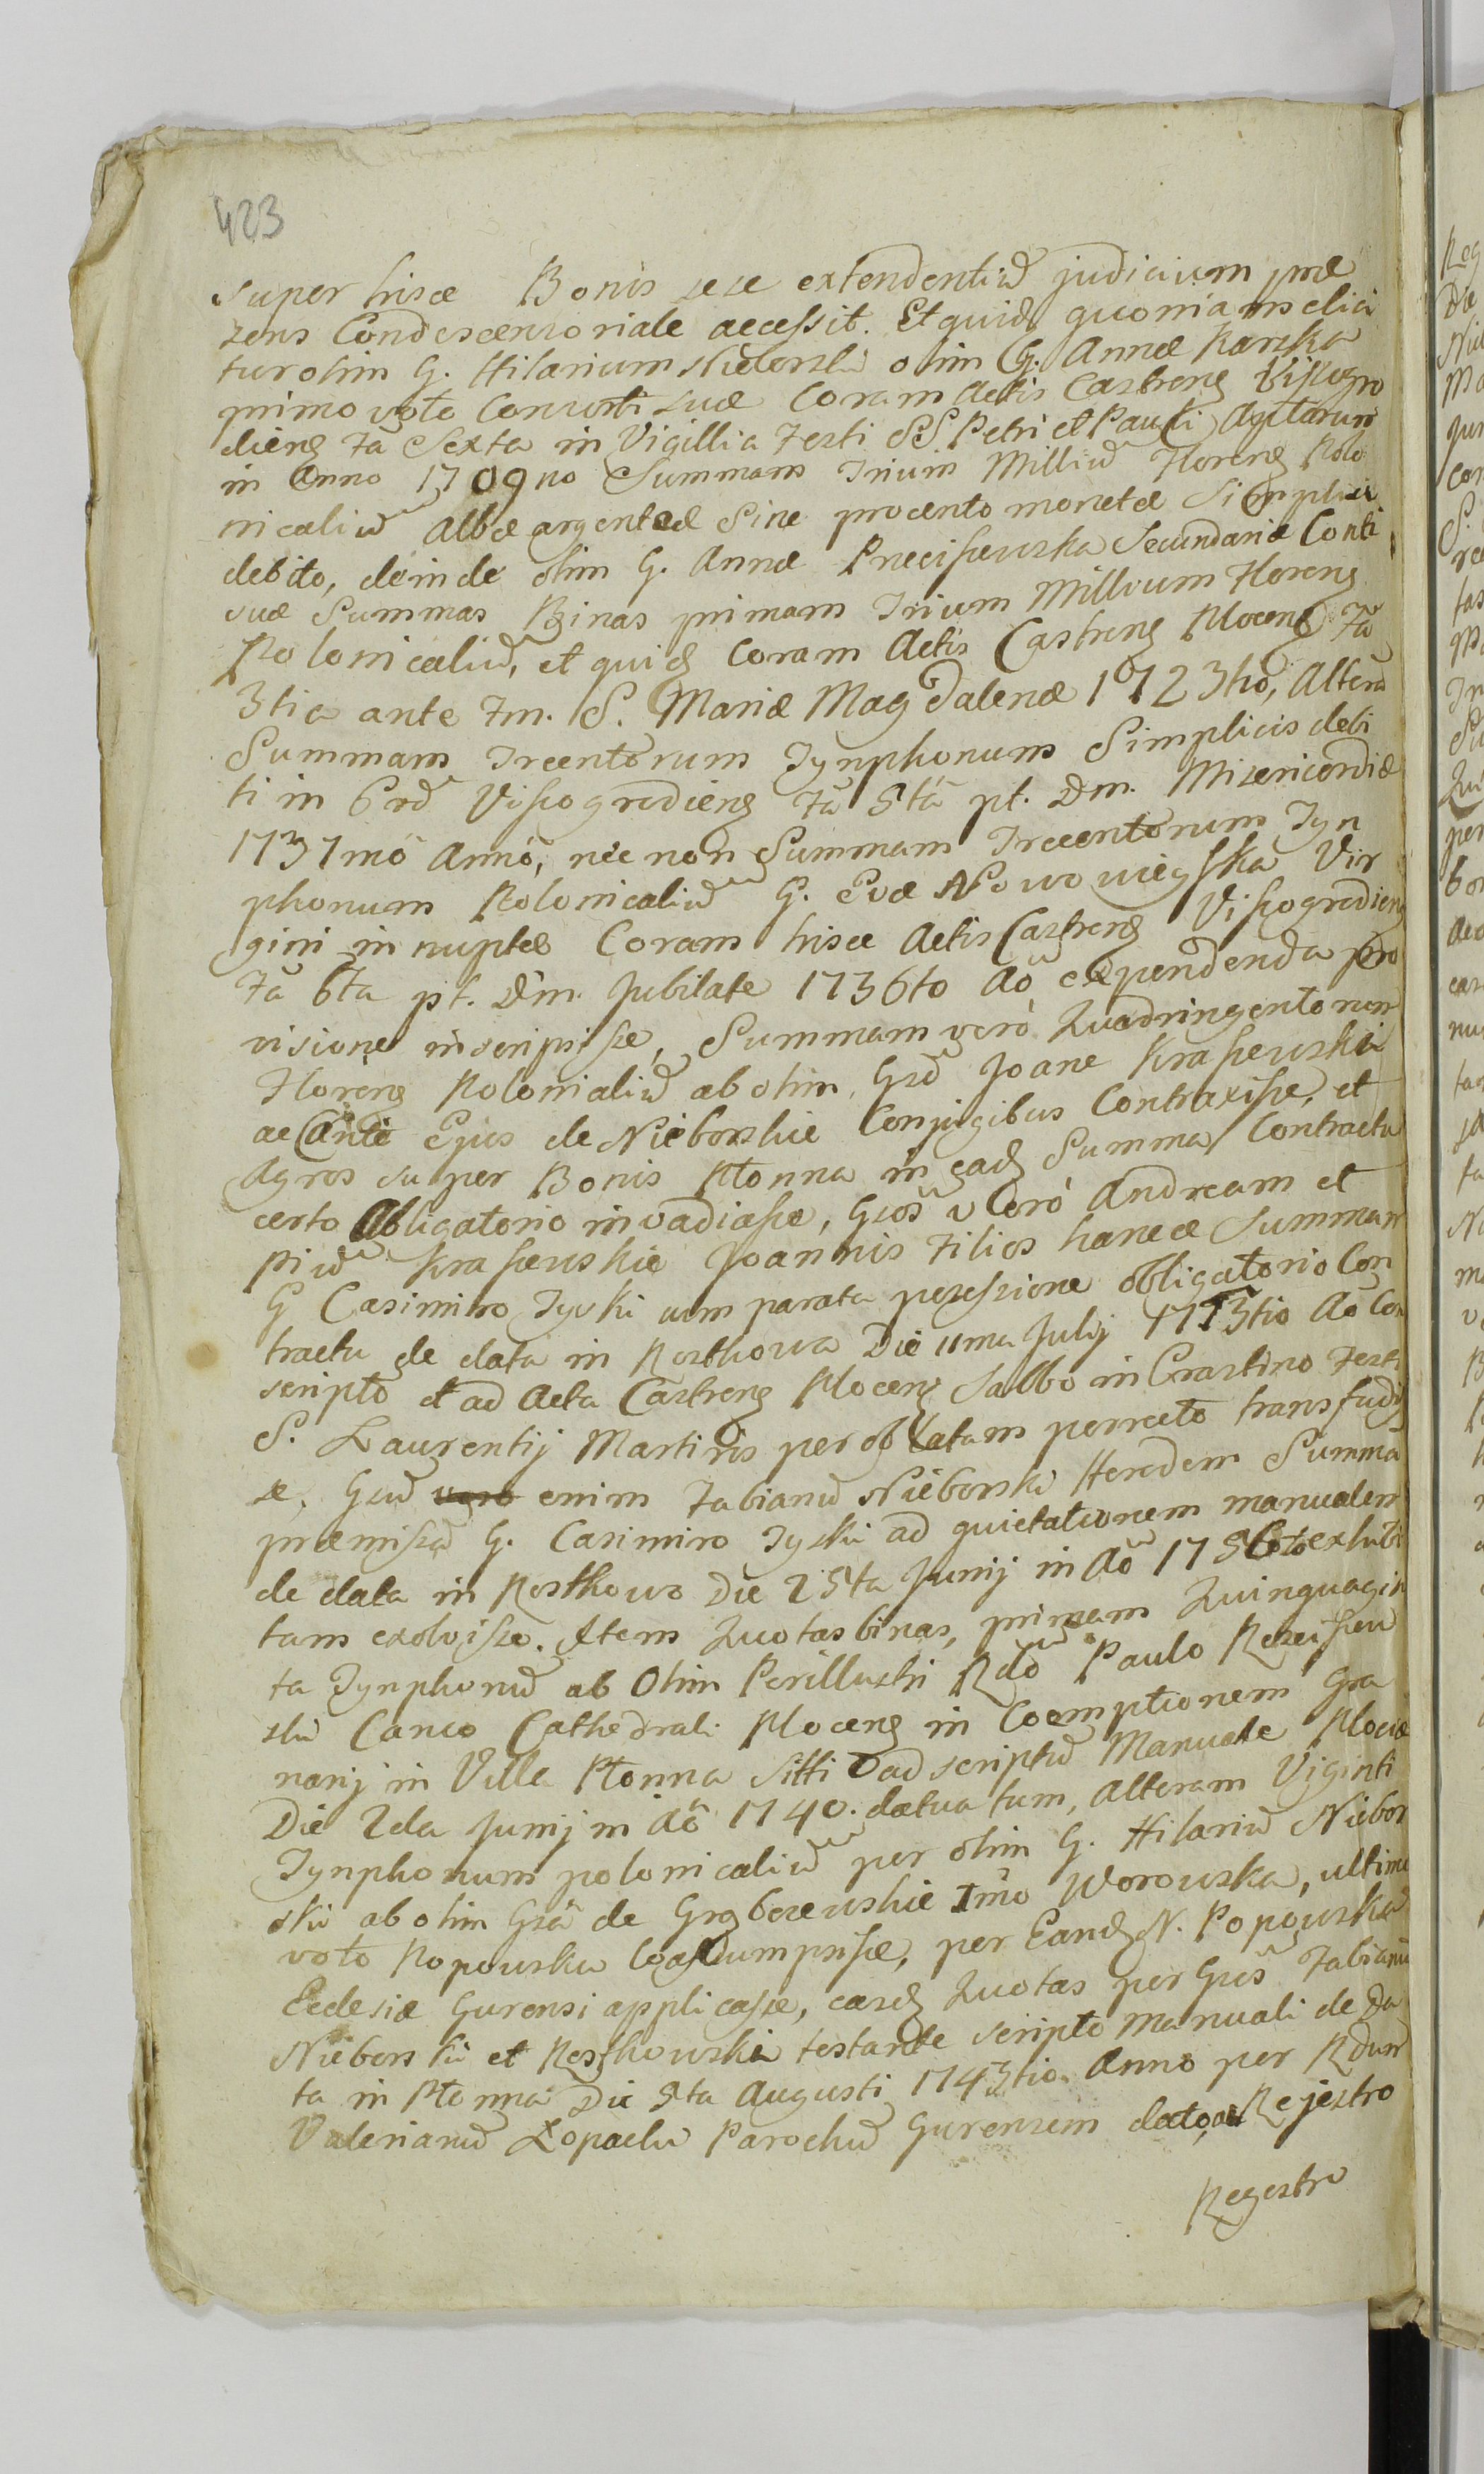 423
super hisce Bonis sese extendentiũ judicium præ
zens Condescensoriale accessit. Et quidẽ quoniam elici
tur olim G. Hilarium Nieborski olim G. Annæ Karska
primo voto Consorti suæ Coram Actis Castreng Vissogro
dieng fa Sexta in Vigillia Festi SS Petri et Pauli Aptlorum
in Anno 1709no Summam Trium Milliũ Floreng Polo
nicaliũ albæ argenteæ Sine procento monetæ Simplici
debito, deinde olim G. Annæ Preciszewska Secundariæ Conti
suæ Summas Binas primam Trium Millium Floreng
Polonicaliũ, et quidẽ Coram Actis Castreng Ploceng Fa
3tia ante Fm. S. Mariæ Magdalenæ 1723tio, Alteru
Summam Trecentorum Tynphonum Simplicis debi
ti in Grod Vissogrodieng Fa 5ta pt. Dm. Misericordiæ
1737mo Anno, nec non Summam Trecentorum Tyn
phonum Polonicaliũ G. Evæ Nowowieyska Vir
gini in nuptæ Coram hisce Actis Castreng Vissogrodieng
Fa 6ta pt. Dm. Jubilate 1736to Ao expendenda pro
visione inscripsisse, Summam verò Quadringentorum
Floreng Polonialiũ ab olim Gso Joane Kraszewski
ac Conte Ejus de Nieborskie Conjugibus Contraxisse, et
Agros super Bonis Płonna in eadẽ Summa Contractu
certo Obligatorio invadiasse, Gsos vero Andream et
Piũ Kraszewskie Joannis Filios hancce Summam
G Casimiro Tyski cum parata possessione obligatorio Con
tractu de data in Rostkowa Die 11ma Julij 1773tio Ao Con
scripto et ad Acta Castreng Ploceng Sabbo in Crastino Festi
S. Laurentij Martiris per oblatam porrecto transfudis
se, Gsũ vero enim Fabianũ Nieborski Heredem Summã
præmissã G. Casimiro Tyski ad quietationem manualem
de data in Rostkowo Die 25ta Junij in Ao 1756to exhibi
tam exolvisse. Item Quotas binas, primam Quinquagin
ta Tynphonũ ab Olim Perillustri Rdo Paulo Preciszew
ski Canco Cathedrali Ploceng in Coemptionem Gra
narij in Villa Płonna Sitti ad scriptũ Manuale Plociæ
Die 2da Junij in Ao 1740. datuatum, Alteram Viginti
Tynphonum polonicaliũ per olim G. Hilariũ Niebor
ski ab olim Gsa de Grzbczewskie 1mo Worowska, ultimo
voto Popowska Coassumpsisse, per Eandẽ N. Popowska
Ecclesiæ Gurensi applicasse, easdẽ Quotas per Gsos Fabianũ
Nieborski et Rostkowski testante scripto manuali de Da
ta in Płonna Die 5ta Augusti 1743tio Anno per Rdum
Valerianũ Łopacki Parochũ Gurensem dato, ac Rejestro
Regestro